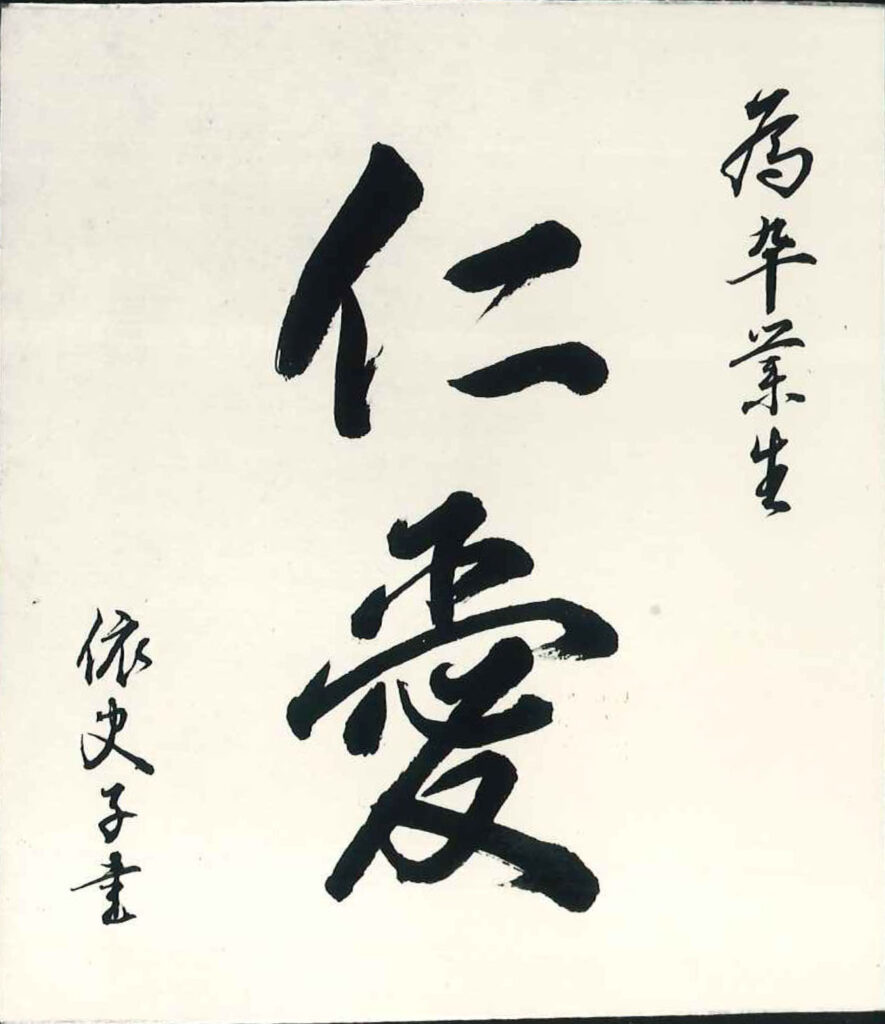 為卒業生
仁愛
依史子書